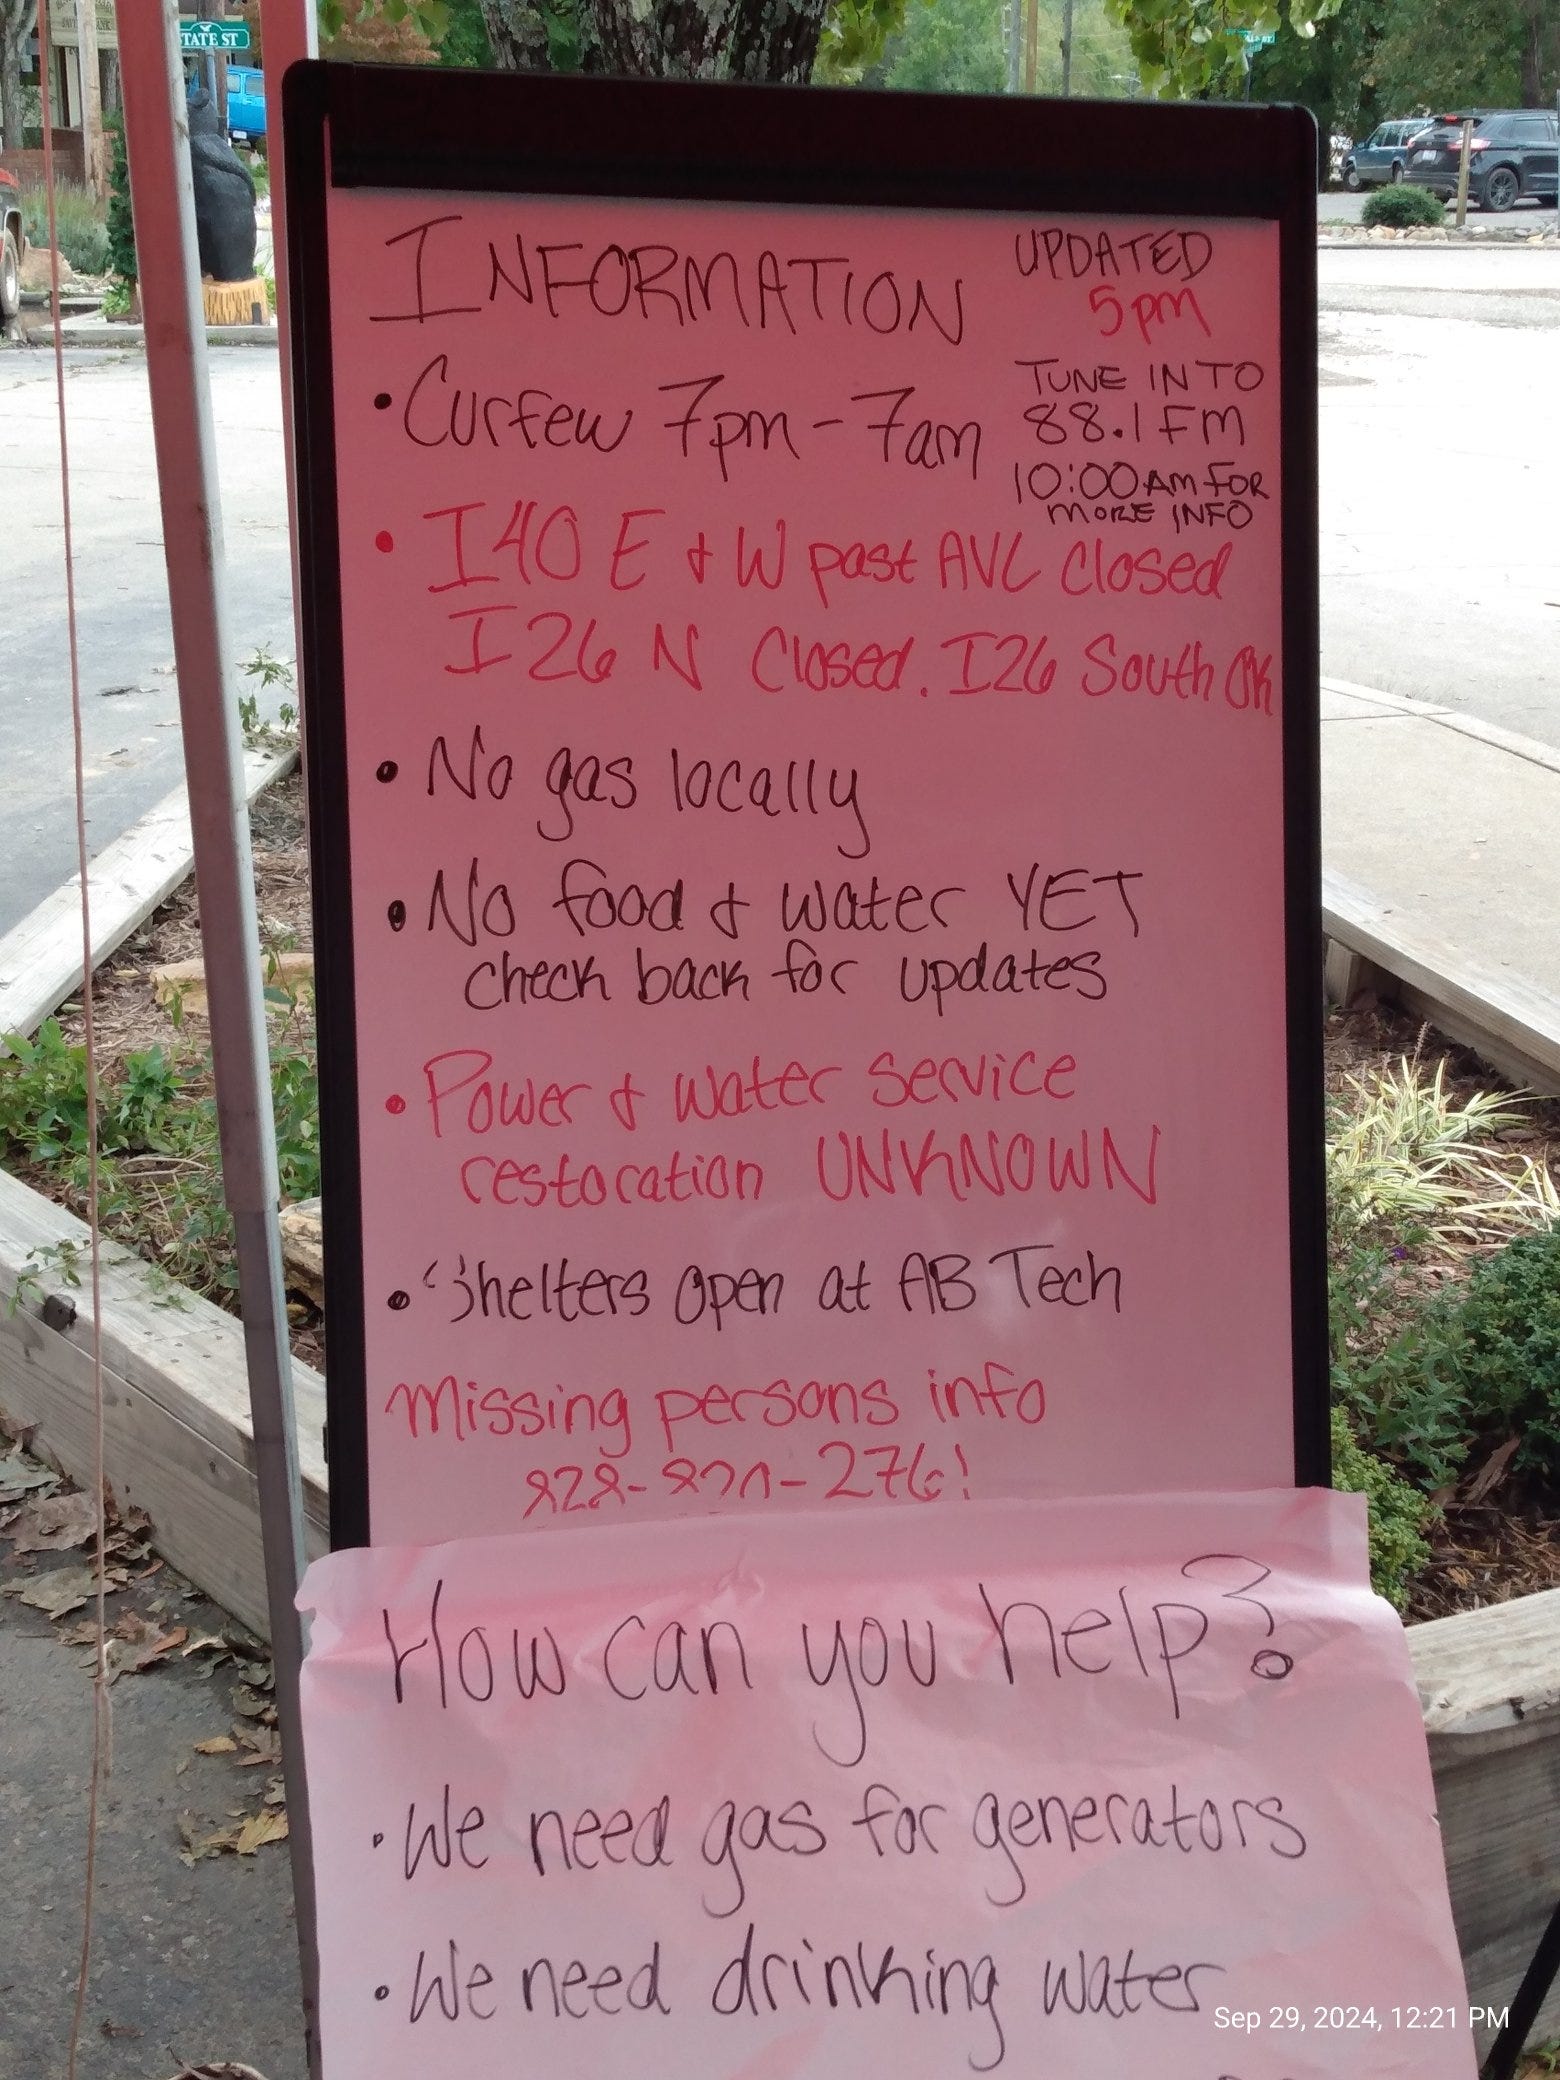 STATE ST
INFORMATION
UPDATED
5pm
TUNE INTO
88.1 FM
10:00AM FOR
MORE INFO
• Curfew 7pm - 7am
• I40 E & W past AVL Closed
I26 N Closed. I26 South OK
• No gas locally
• No food & water YET
check back for updates
• Power & water service
restoration UNKNOWN
• Shelters open at AB Tech
Missing persons info
How can you help?
• We need gas for generators
• We need drinking water
Sep 29, 2024, 12:21 PM